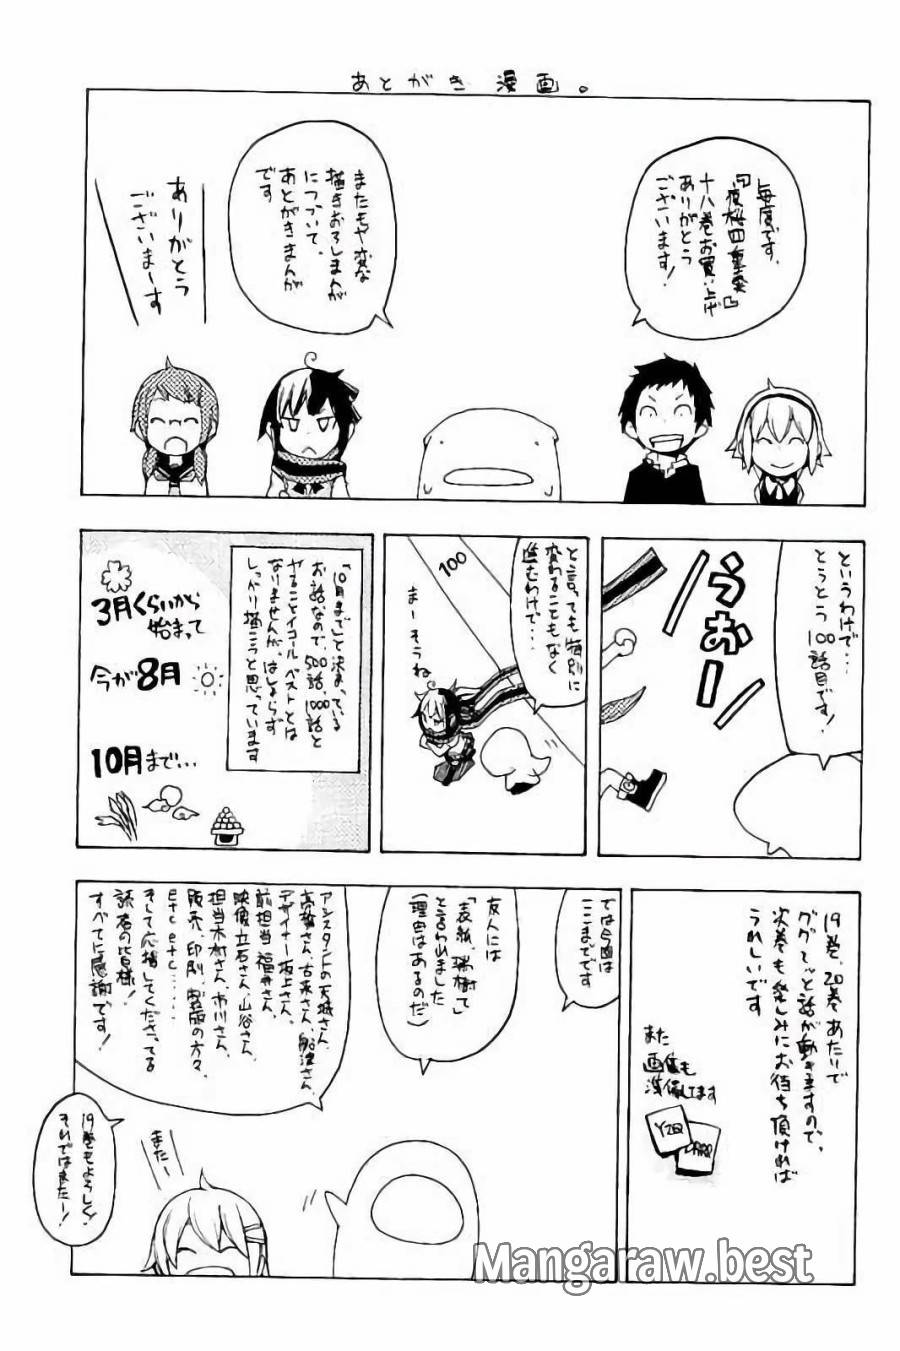 あとがき 漫画。
毎度です。
『夜桜四重奏』
十八巻お買い上げ
ありがとう
ございます!
またもや変な
描きおろしまんが
について、
あとがきまんが
です
ありがとう
ございまーす
というわけで…
とうとう100話目です!
うおー
と言っても特別に
変わることもなく
進むわけで…
100
まーそうね
「10月まで」と決まっている
お話なので、500話、1000話と
やることイコールベストとは
なりませんが、はしょらず
しっかり描こうと思っています
3月くらいから
始まって
今が8月
10月まで…
19巻、20巻あたりで
ググ〜っと話が動きますので、
次巻も楽しみにお待ち頂ければ
うれしいです
また
画集も
準備してます
YZQ
では今回は
ここまでです
友人には
「表紙、瑞樹て」
と言われました
(理由はあるのだ)
アシスタントの天城さん、
高曽さん、古来さん、船津さん、
デザイナー坂上さん、
前担当 福井さん、
映像 立石さん、山谷さん、
担当木村さん、市川さん、
販売、印刷、製版の方々、
etc etc……
そして応援してくださってる
読者の皆様!
すべてに感謝です!
またー
19巻もよろしく!
それではまたー!
Mangaraw.best